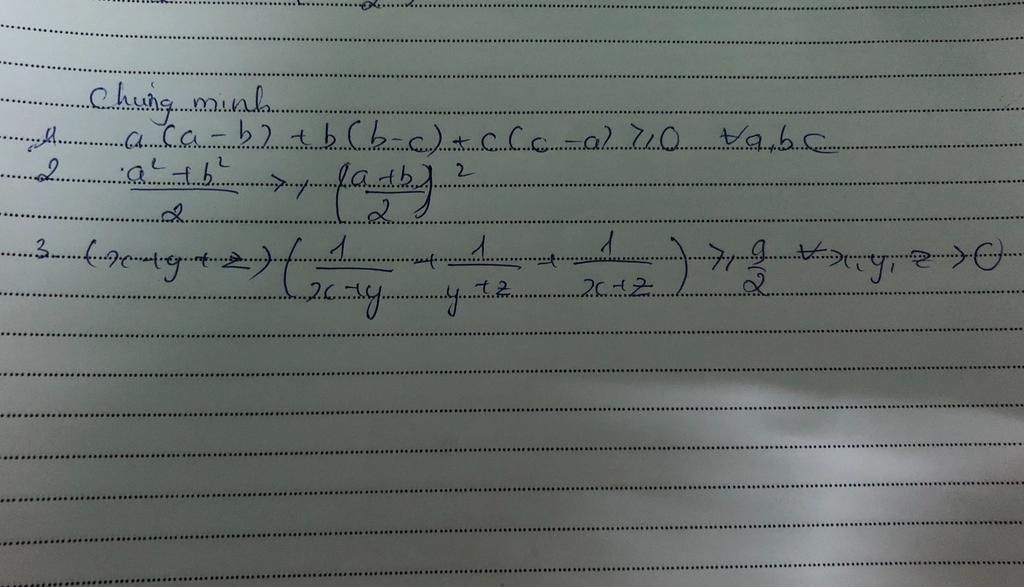 Chứng minh
1. a(a-b)+b(b-c)+c(c-a) ≥ 0 ∀a,b,c
2 \frac{a²+b²}{2} ≥ (\frac{a+b}{2})²
3. (x+y+z)(\frac{1}{x+y} + \frac{1}{y+z} + \frac{1}{x+z}) ≥ \frac{9}{2} ∀x,y,z > 0